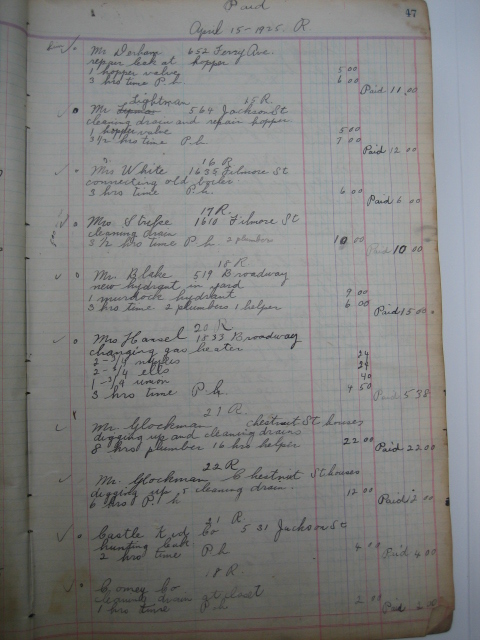 Paid
47
April 15-1925. R.
Mr Dorham 652 Ave.
repair leak at hopper
1 hopper valve 5 00
3 hrs time P.h 6 00 Paid 11.00
Lightman 15 R
Mr 564 Jackson St
cleaning drain and repair hopper
1 hopper valve 5 00
3½ hrs time P.h 7 00 Paid 12 00
16 R
Mrs White 1635 Filmore St
connecting old boiler
3 hrs time P.h 6 00 Paid 6 00
17 R
Mrs. 1610 Filmore St
cleaning drain
3½ hrs time P.h 2 plumbers 10 00 Paid 10 00
18 R.
Mr. Blake 519 Broadway
new hydrant in yard
1 murdock hydrant 9.00
3 hrs time 2 plumbers 1 helper 6 00 Paid 15 00
20 R
Mrs Hansel 1833 Broadway
changing gas heater
2-3/4 nipples 24
2-3/4 ells 24
1-3/4 union 40
3 hrs time P.h. 4 50 Paid 5 38
21 R.
Mr. Glockman chestnut St houses
digging up and cleaning drains
8 hrs plumber 16 hrs helper 22.00 Paid 22.00
22 R
Mr. Glockman, Chestnut St houses
digging up & cleaning drain.
6 hrs P. h 12 00 Paid 00
21 R.
Castle Co 531 Jackson St
hunting leak
2 hrs time P.h 4 00 Paid 4 00
18 R.
Co
cleaning drain at plant
1 hrs time P.h 2 00 Paid 2 00